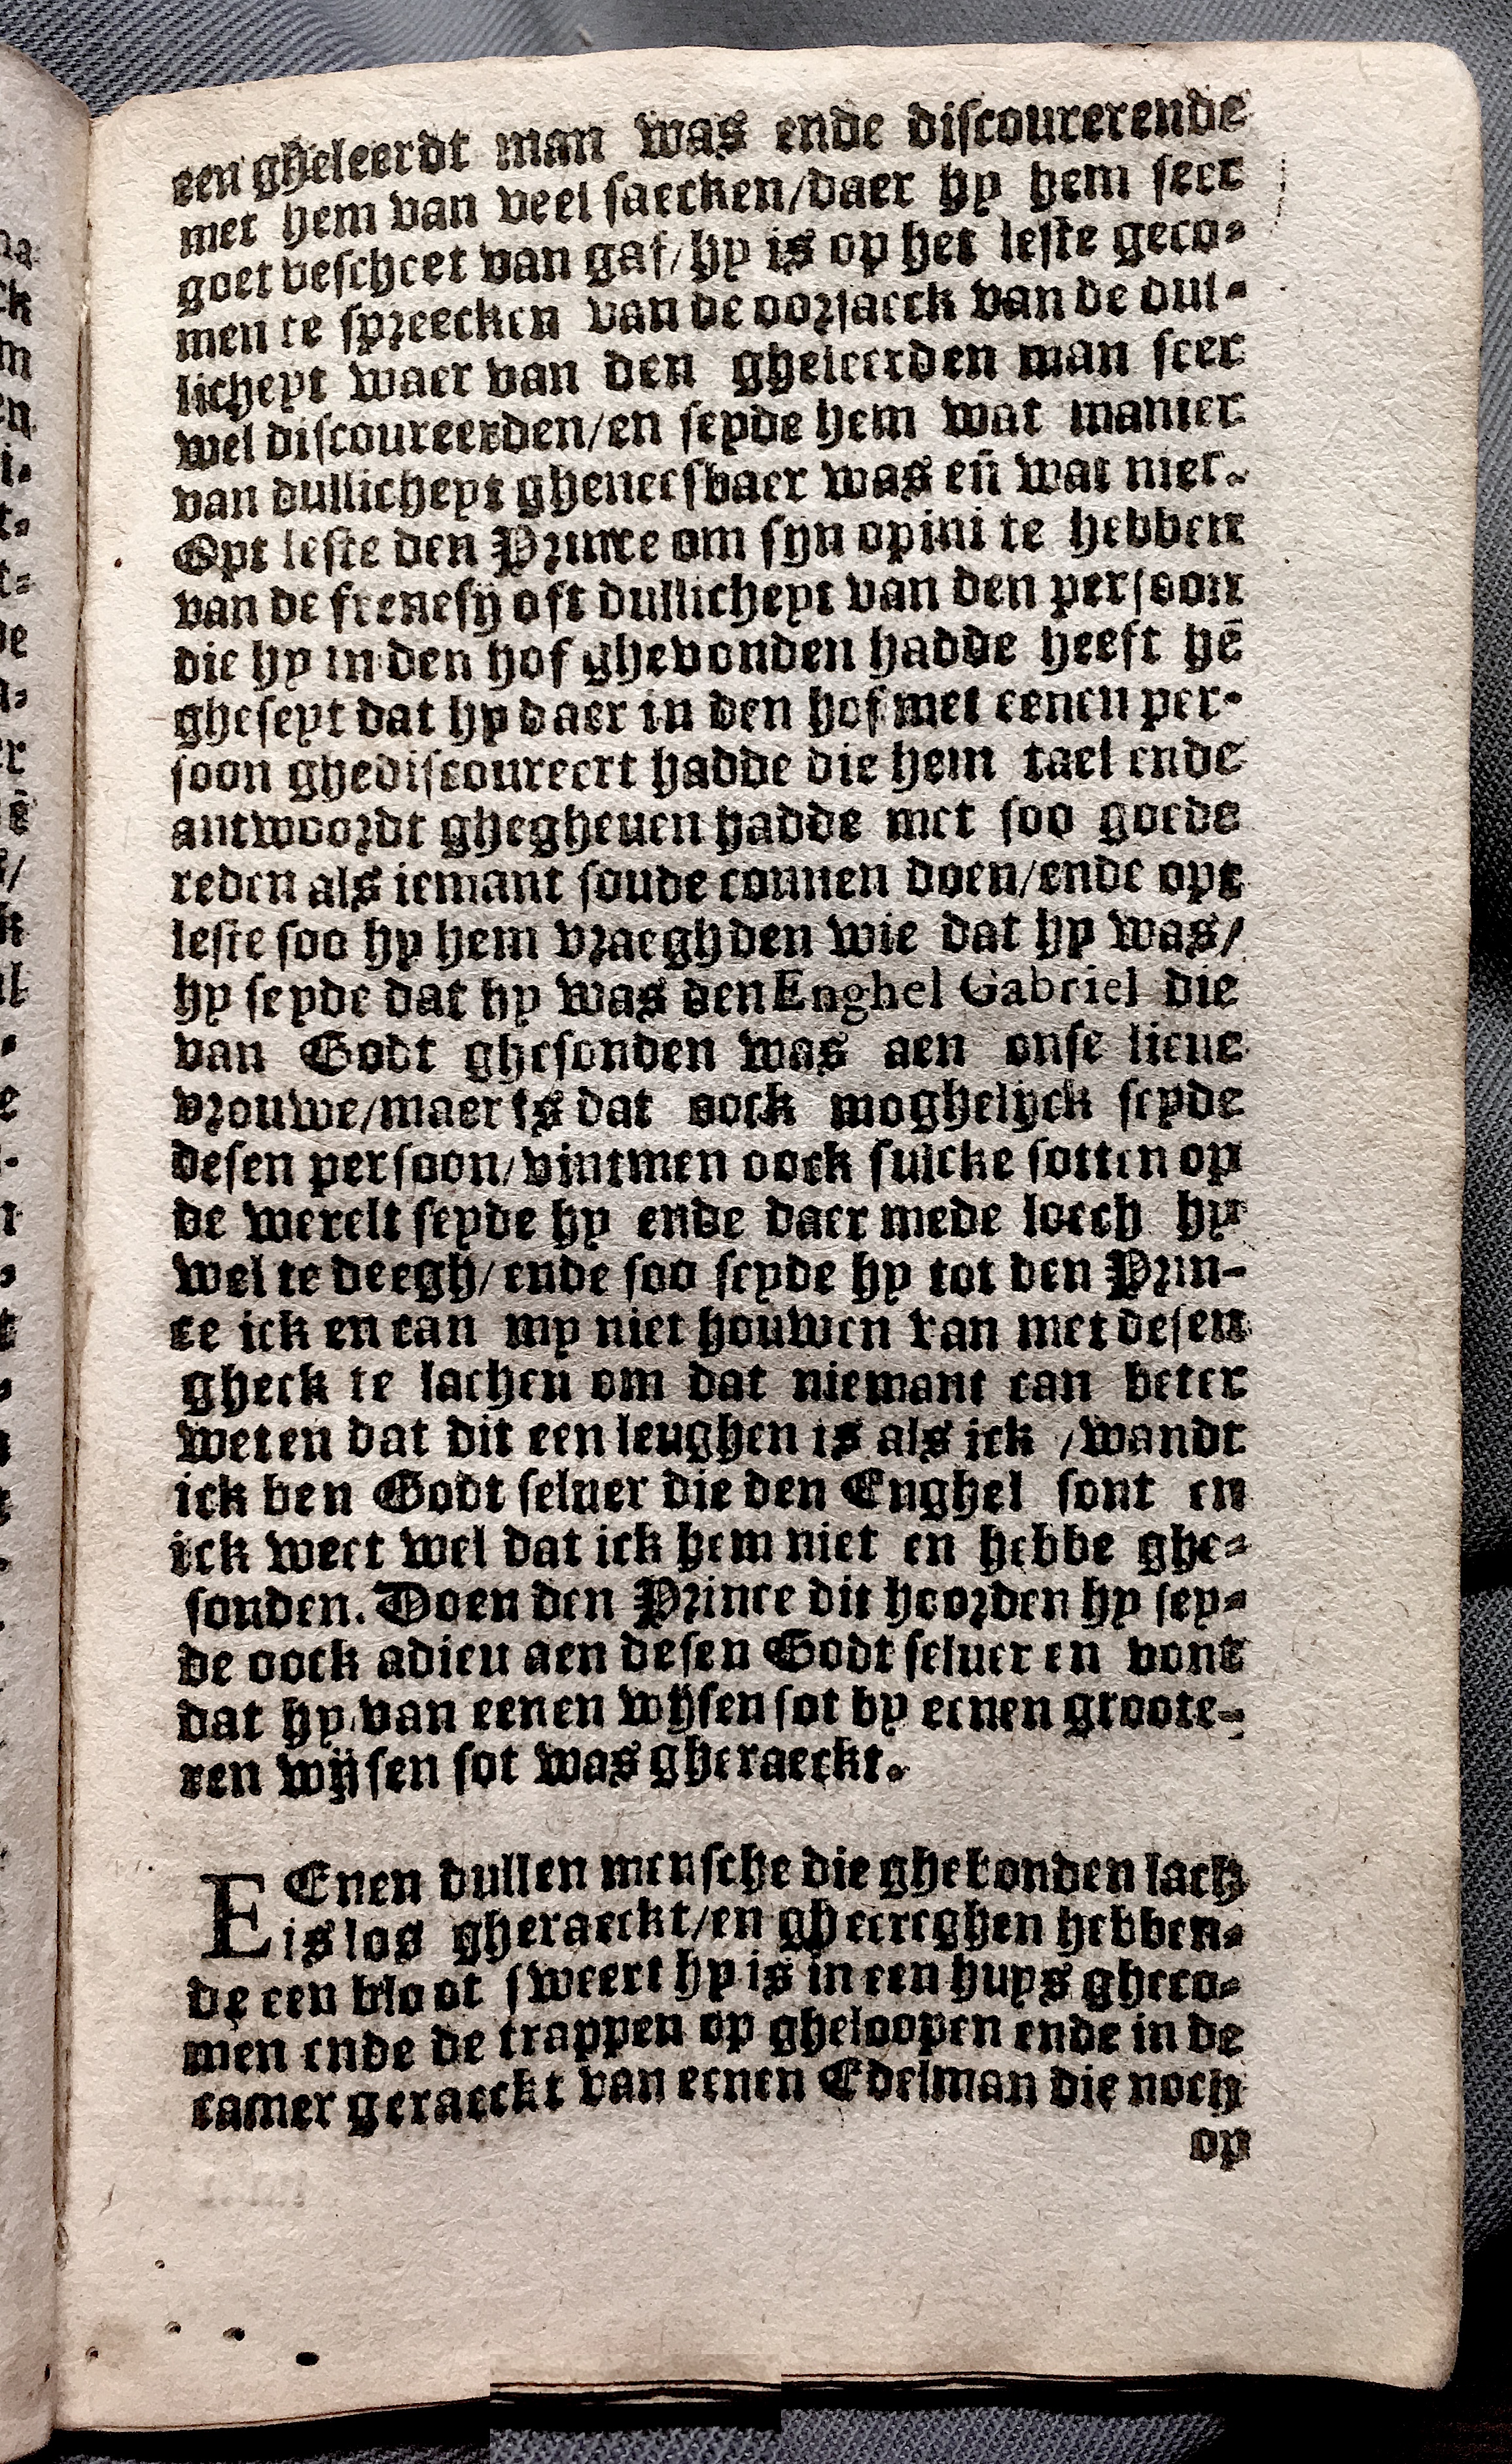 een gheleerdt man was ende discourerende
met hem van veel saecken/daer hy hem seer
goet bescheet van gaf/hy is op het leste geco-
men te spreecken van de oorsaeck van de dul-
licheyt waer van den gheleerden man seer
wel discoureerden/en seyde hem wat manier
van dullicheyt gheneesbaer was eñ wat niet.
Opt leste den Prince om syn opini te hebben
van de frenesij oft dullicheyt van den persoon
die hy in den hof ghevonden hadde heeft hē
gheseyt dat hy daer in den hof met eenen per-
soon ghediscoureert hadde die hem tael ende
antwoordt ghegheuen hadde met soo goede
reden als iemant soude connen doen/ende opt
leste soo hy hem vraeghden wie dat hy was/
hy seyde dat hy was den Enghel Gabriel die
van Godt ghesonden was aen onse lieue
vrouwe/maer is dat oock moghelyck seyde
desen persoon/vintmen oock sulcke sotten op
de werelt seyde hy ende daer mede loech hy
wel te deegh/ende soo seyde hy tot den Prin-
ce ick en can my niet houwen van met desen
gheck te lachen om dat niemant can beter
weten dat dit een leughen is als ick /wandt
ick ben Godt seluer die den Enghel sont en
ick weet wel dat ick hem niet en hebbe ghe-
sonden. Doen den Prince dit hoorden hy sey-
de oock adieu aen desen Godt seluer en vont
dat hy van eenen wijsen sot by eenen groote-
ren wijsen sot was gheraeckt.

EEnen dullen mensche die ghebonden lach
is los gheraeckt/en ghecreghen hebben-
de een bloot sweert hy is in een huys gheco-
men ende de trappen op gheloopen ende in de
camer geraeckt van eenen Edelman die noch
op